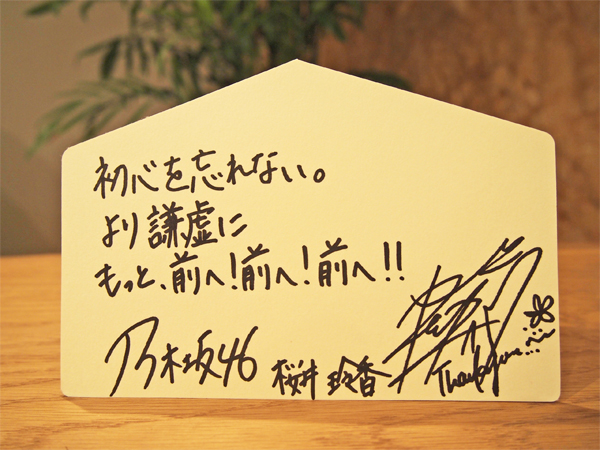 初心を忘れない。
より謙虚に
もっと、前へ！前へ！前へ！！
乃木坂46 桜井玲香
Thank you...